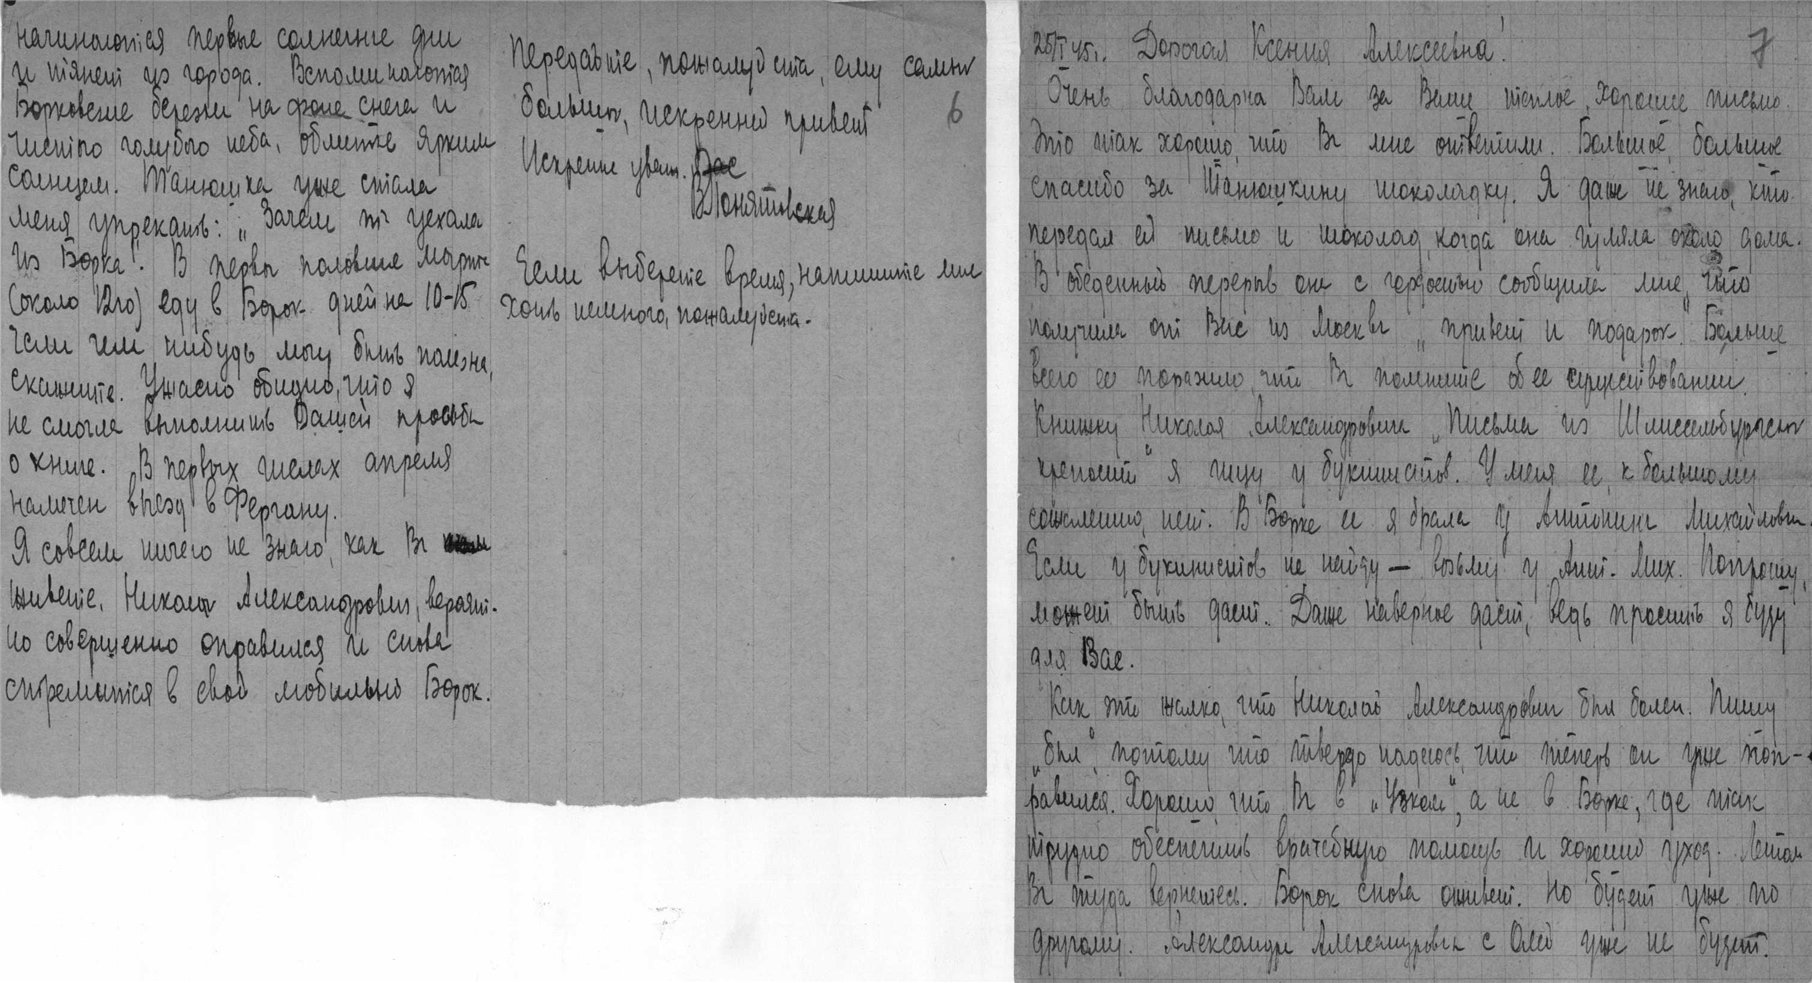 начинаются первые солнечные дни
и тянет из города. Вспоминаются
Борковские березки на фоне снега и
чистого голубого неба, облитые ярким
солнцем. Танюшка уже стала
меня упрекать: „Зачем ты уехала
из Борка". В первой половине марта
(около 12го) еду в Борок дней на 10-15
Если чем нибудь могу быть полезна,
скажите. Ужасно обидно, что я
не смогла выполнить Вашей просьбы
о книге. В первых числах апреля
намечен выезд в Фергану.
Я совсем ничего не знаю, как Вы
живете. Николай Александрович, вероят-
но совершенно оправился и снова
стремится в свой любимый Борок.
6
Передайте, пожалуйста, ему самый
большой, искренний привет
Искренне уваж. Вас
В Понятовская
Если выберете время, напишите мне
хоть немного, пожалуйста.
7
25/I 45г. Дорогая Ксения Алексеевна!
Очень благодарна Вам за Ваше теплое, хорошее письмо.
Это так хорошо, что Вы мне ответили. Большое, большое
спасибо за Танюшкину шоколадку. Я даже не знаю, кто
передал ей письмо и шоколад, когда она гуляла около дома.
В обеденный перерыв она с гордостью сообщила мне, что
получила от Вас из Москвы „привет и подарок". Больше
всего ее поразило, что Вы помните об ее существовании.
Книжку Николая Александровича „Письма из Шлиссельбургской
крепости" я ищу у букинистов. У меня ее, к большому
сожалению, нет. В Борке ее я брала у Антонины Михайловны.
Если у букинистов не найду — возьму у Ант. Мих. Попрошу,
может быть даст. Даже наверное даст, ведь просить я буду
для Вас.
Как это жалко, что Николай Александрович был болен. Пишу
„был", потому что твердо надеюсь, что теперь он уже поп-
равился. Хорошо, что Вы в „Узком", а не в Борке, где так
трудно обеспечить врачебную помощь и хороший уход. Летом
Вы туда вернетесь. Борок снова оживет. Но будет уже по
другому. Александры Александровны с Олей уже не будет.